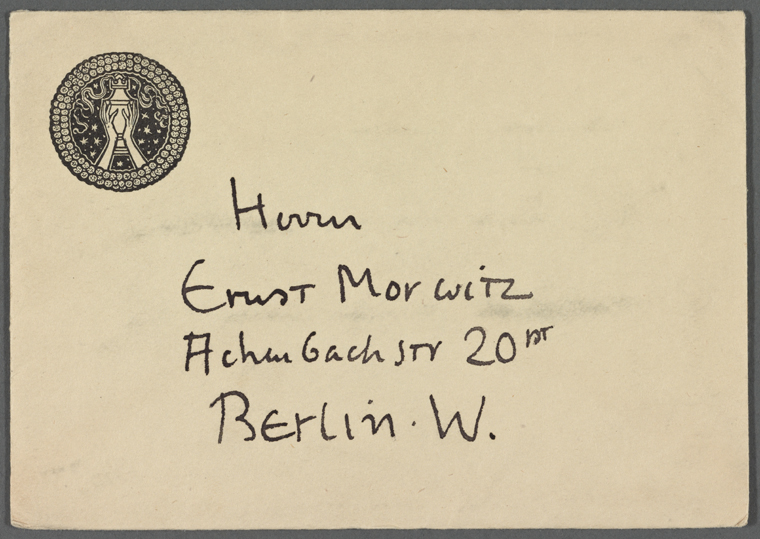 Herrn
Ernst Morwitz
Achenbachstr 20
Berlin·W.